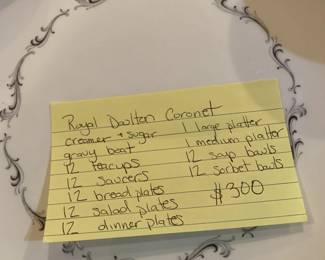 Royal Doulton Coronet
creamer + sugar
gravy boat
12 teacups
12 saucers
12 bread plates
12 salad plates
12 dinner plates
1 large platter
1 medium platter
12 soup bowls
12 sorbet bowls
$300